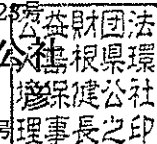 23号
公益財団法
公社
島根県環
境保健公社
彦
号
理事長之印